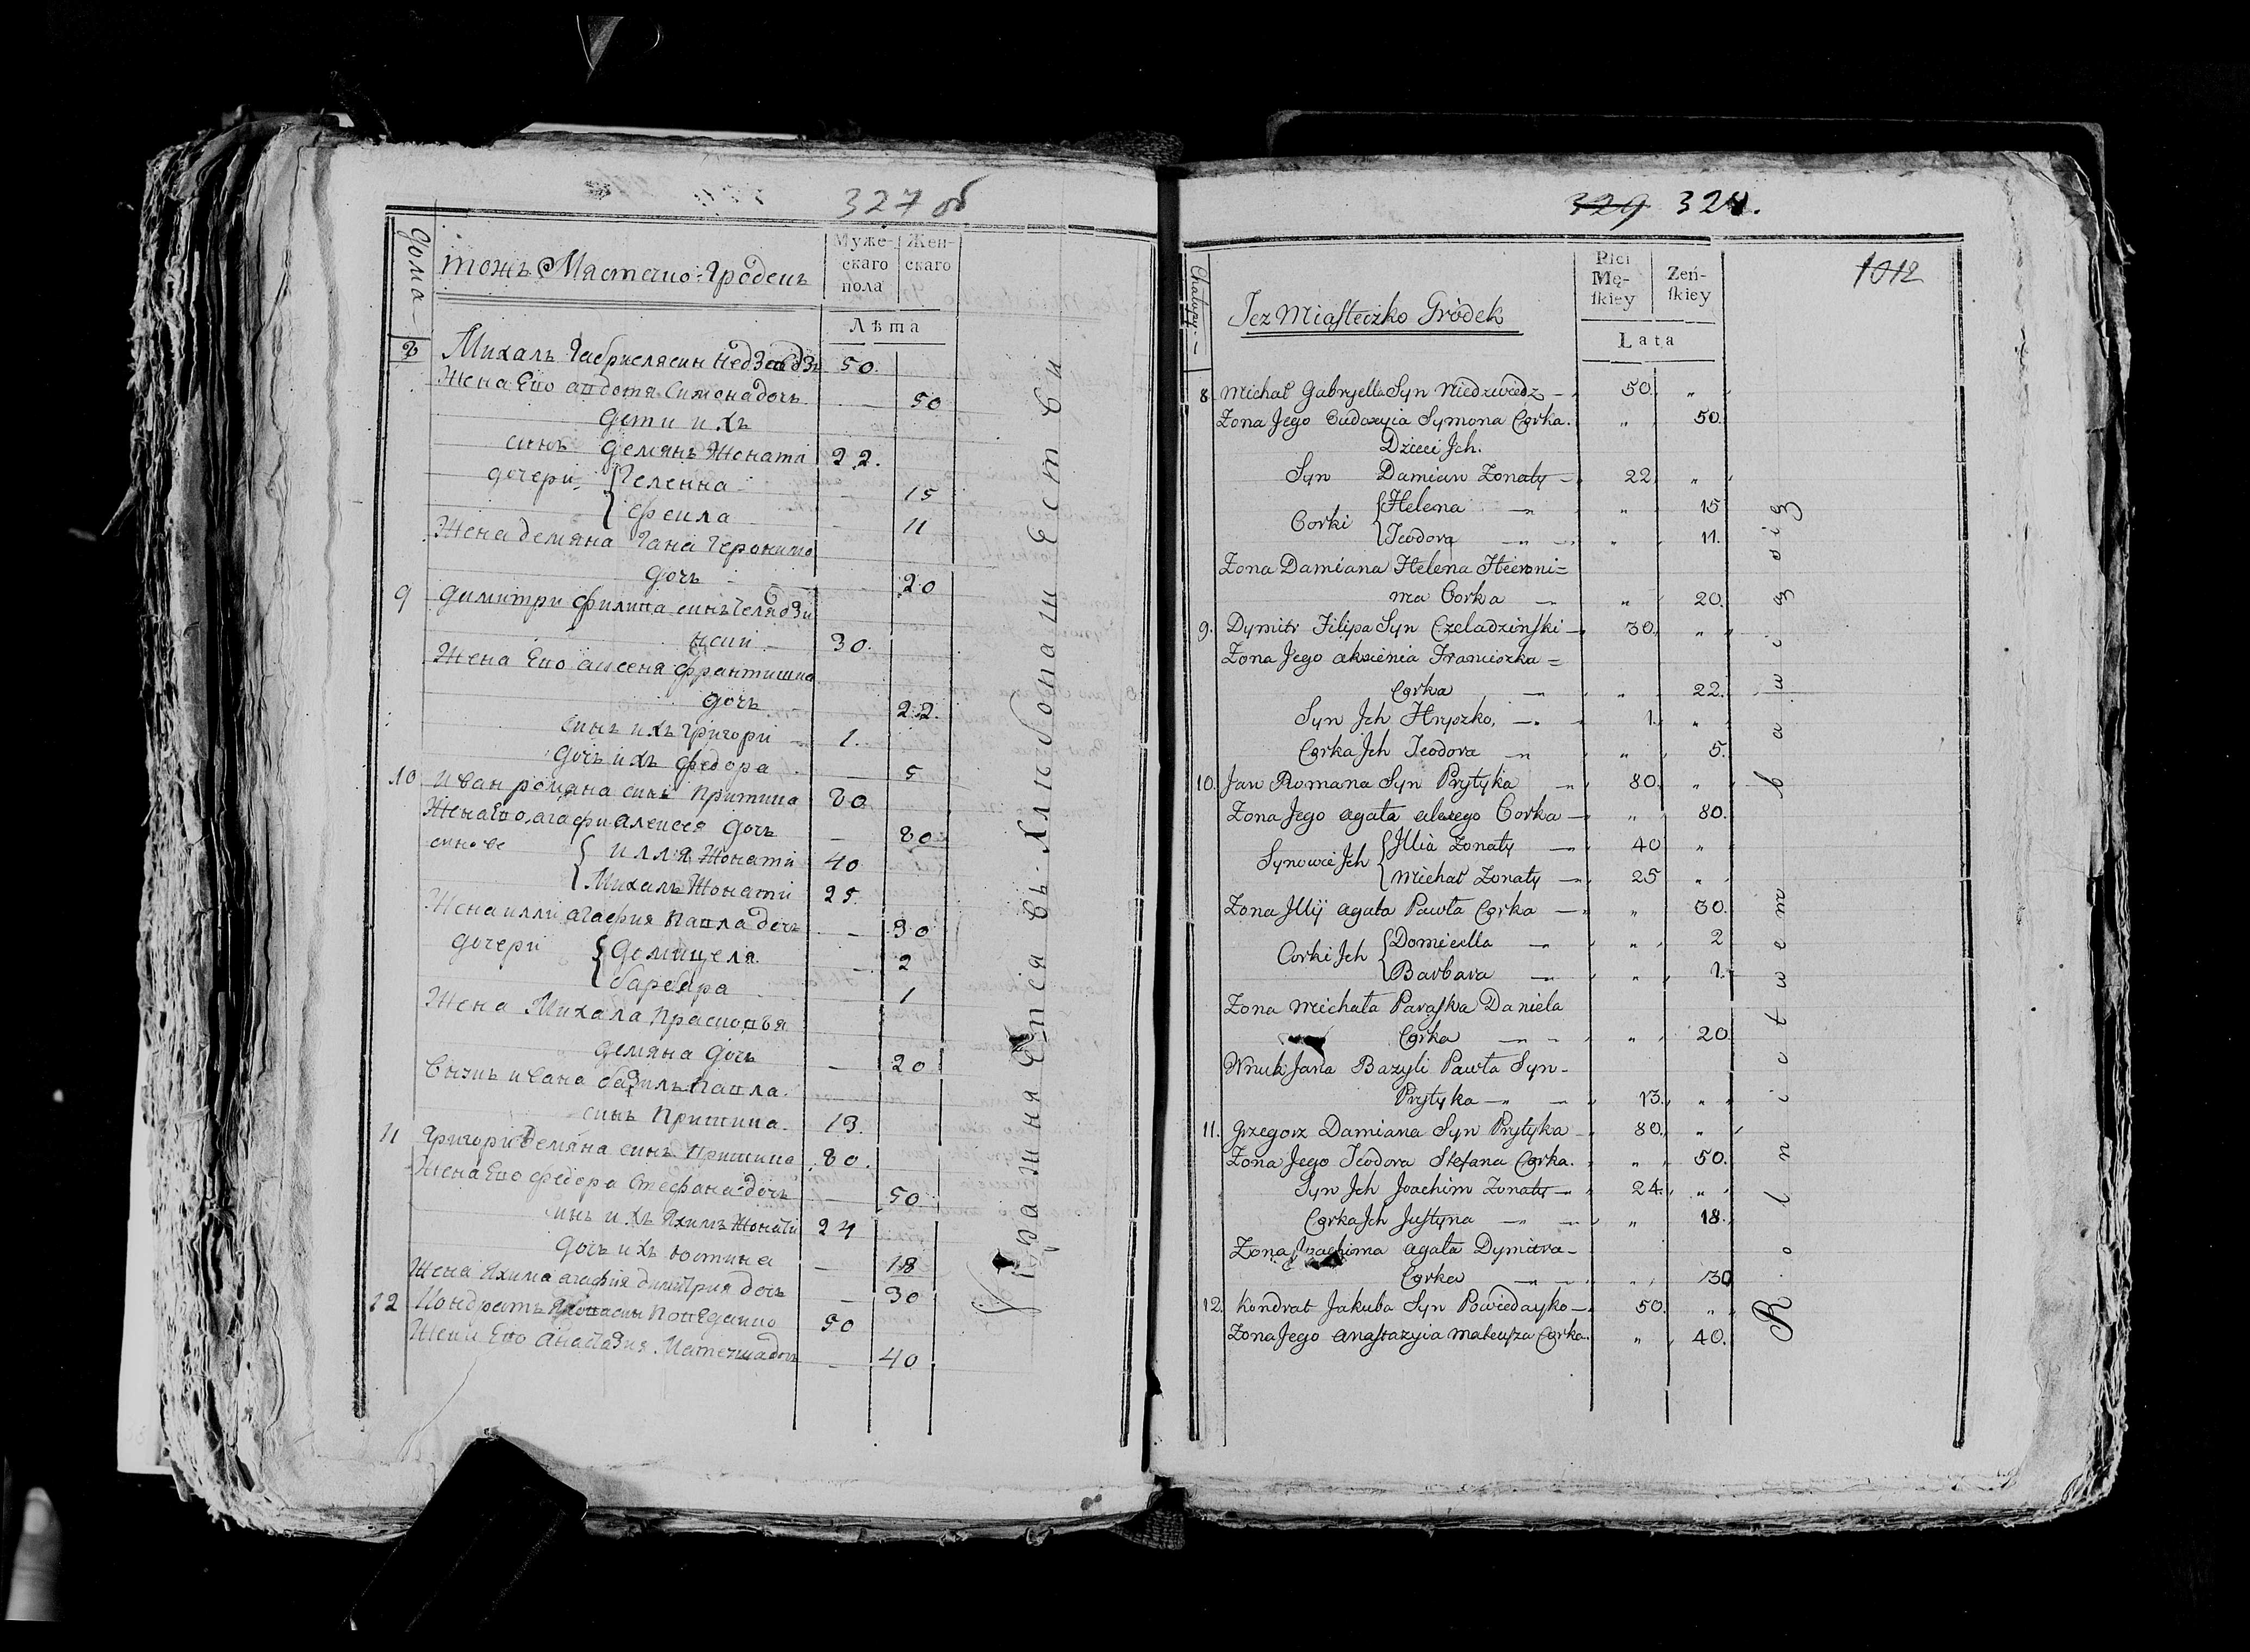 327 об
Дома
тожъ Мястечко Гродекъ
Муже-
скаго
пола
Жен-
скаго
Лѣта
8 Михалъ Габриеля син Недзведзь 50.
Жена Его Авдотя Симона дочь — 50
дети ихъ
синъ Демянъ Жонаті 22.
дочери Геленна — 15
Феѵла — 11
Жена Демяна Гана Геронима
дочь — 20
9 Димитри Филипа синъ Челядзи
нски 30.
Жена Его Аксеня Франтишка
дочь 22.
синъ ихъ Григори — 1.
дочь ихъ Федора — 5
10 Иван Романа синъ Притика 80.
Жена Его, Агафи Алексея дочь — 80
синове Илля Жонаті 40
Михалъ Жонаті 25.
Жена Илли Агафия Павла дочь — 30
дочери Домицеля — 2
барбара — 1
Жена Михала Прасковъя
Демяна дочь — 20
Внукъ ивана базиль Павла
синъ Притика. 13.
11 Григори Демяна синъ Притика 80.
Жена Его Федора Стефана дочь — 50
синъ ихъ Яхимъ Жонаті 24
дочь ихъ Юстина — 18
Жена Яхима агафія димитрия дочь — 30
12 Кондратъ син Поведайко 50
Жена Его Анастазия Матеуша дочь — 40
въ Хлибопаши Естви
329 328.
1012
Chałupy
Tez Miasteczko Gródek
Płci
Mę-
skiey
Zeń-
skiey
Lata
8 Michał Gabryella Syn Niedzwiedz — 50. "
Zona Jego Eudoxyia Symona Corka. " 50.
Dzieci Jch.
Syn Damian Zonaty — 22 "
Corki Helena — " 15
Teodora — " 11.
Zona Damiana Helena Hieroni=
ma Corka — " 20.
9. Dymitr Filipa Syn Czeladzinski — 30. "
Zona Jego aksienia Franciszka =
Corka — " 22.
Syn Jch Hryszko, — 1. "
Corka Jch Teodora — " 5.
10. Jan Romana Syn Prytyka — 80. "
Zona Jego agata alexego Corka — " 80.
Synowie Jch Jllia Zonaty — 40 "
Michał Zonaty — 25 "
Zona Jllij agata Pawła Corka — " 30.
Corki Jch Domicella — " 2
Barbara — " 1.
Zona Michała Paraska Daniela
Corka — " 20
Wnuk Jana Bazyli Pawła Syn-
Prytyka — 13. "
11. Grzegorz Damiana Syn Prytyka 80. "
Zona Jego Teodora Stefana Corka. " 50.
Syn Jch Joachim Zonaty — 24. "
Corka Jch Justyna — " 18.
Zona Joachima agata Dymitra-
Corka — " 30
12. Kondrat Jakuba Syn Powiedayko — 50. "
Zona Jego anastazyia mateusza Corka. " 40.
Rolnictwem bawi się